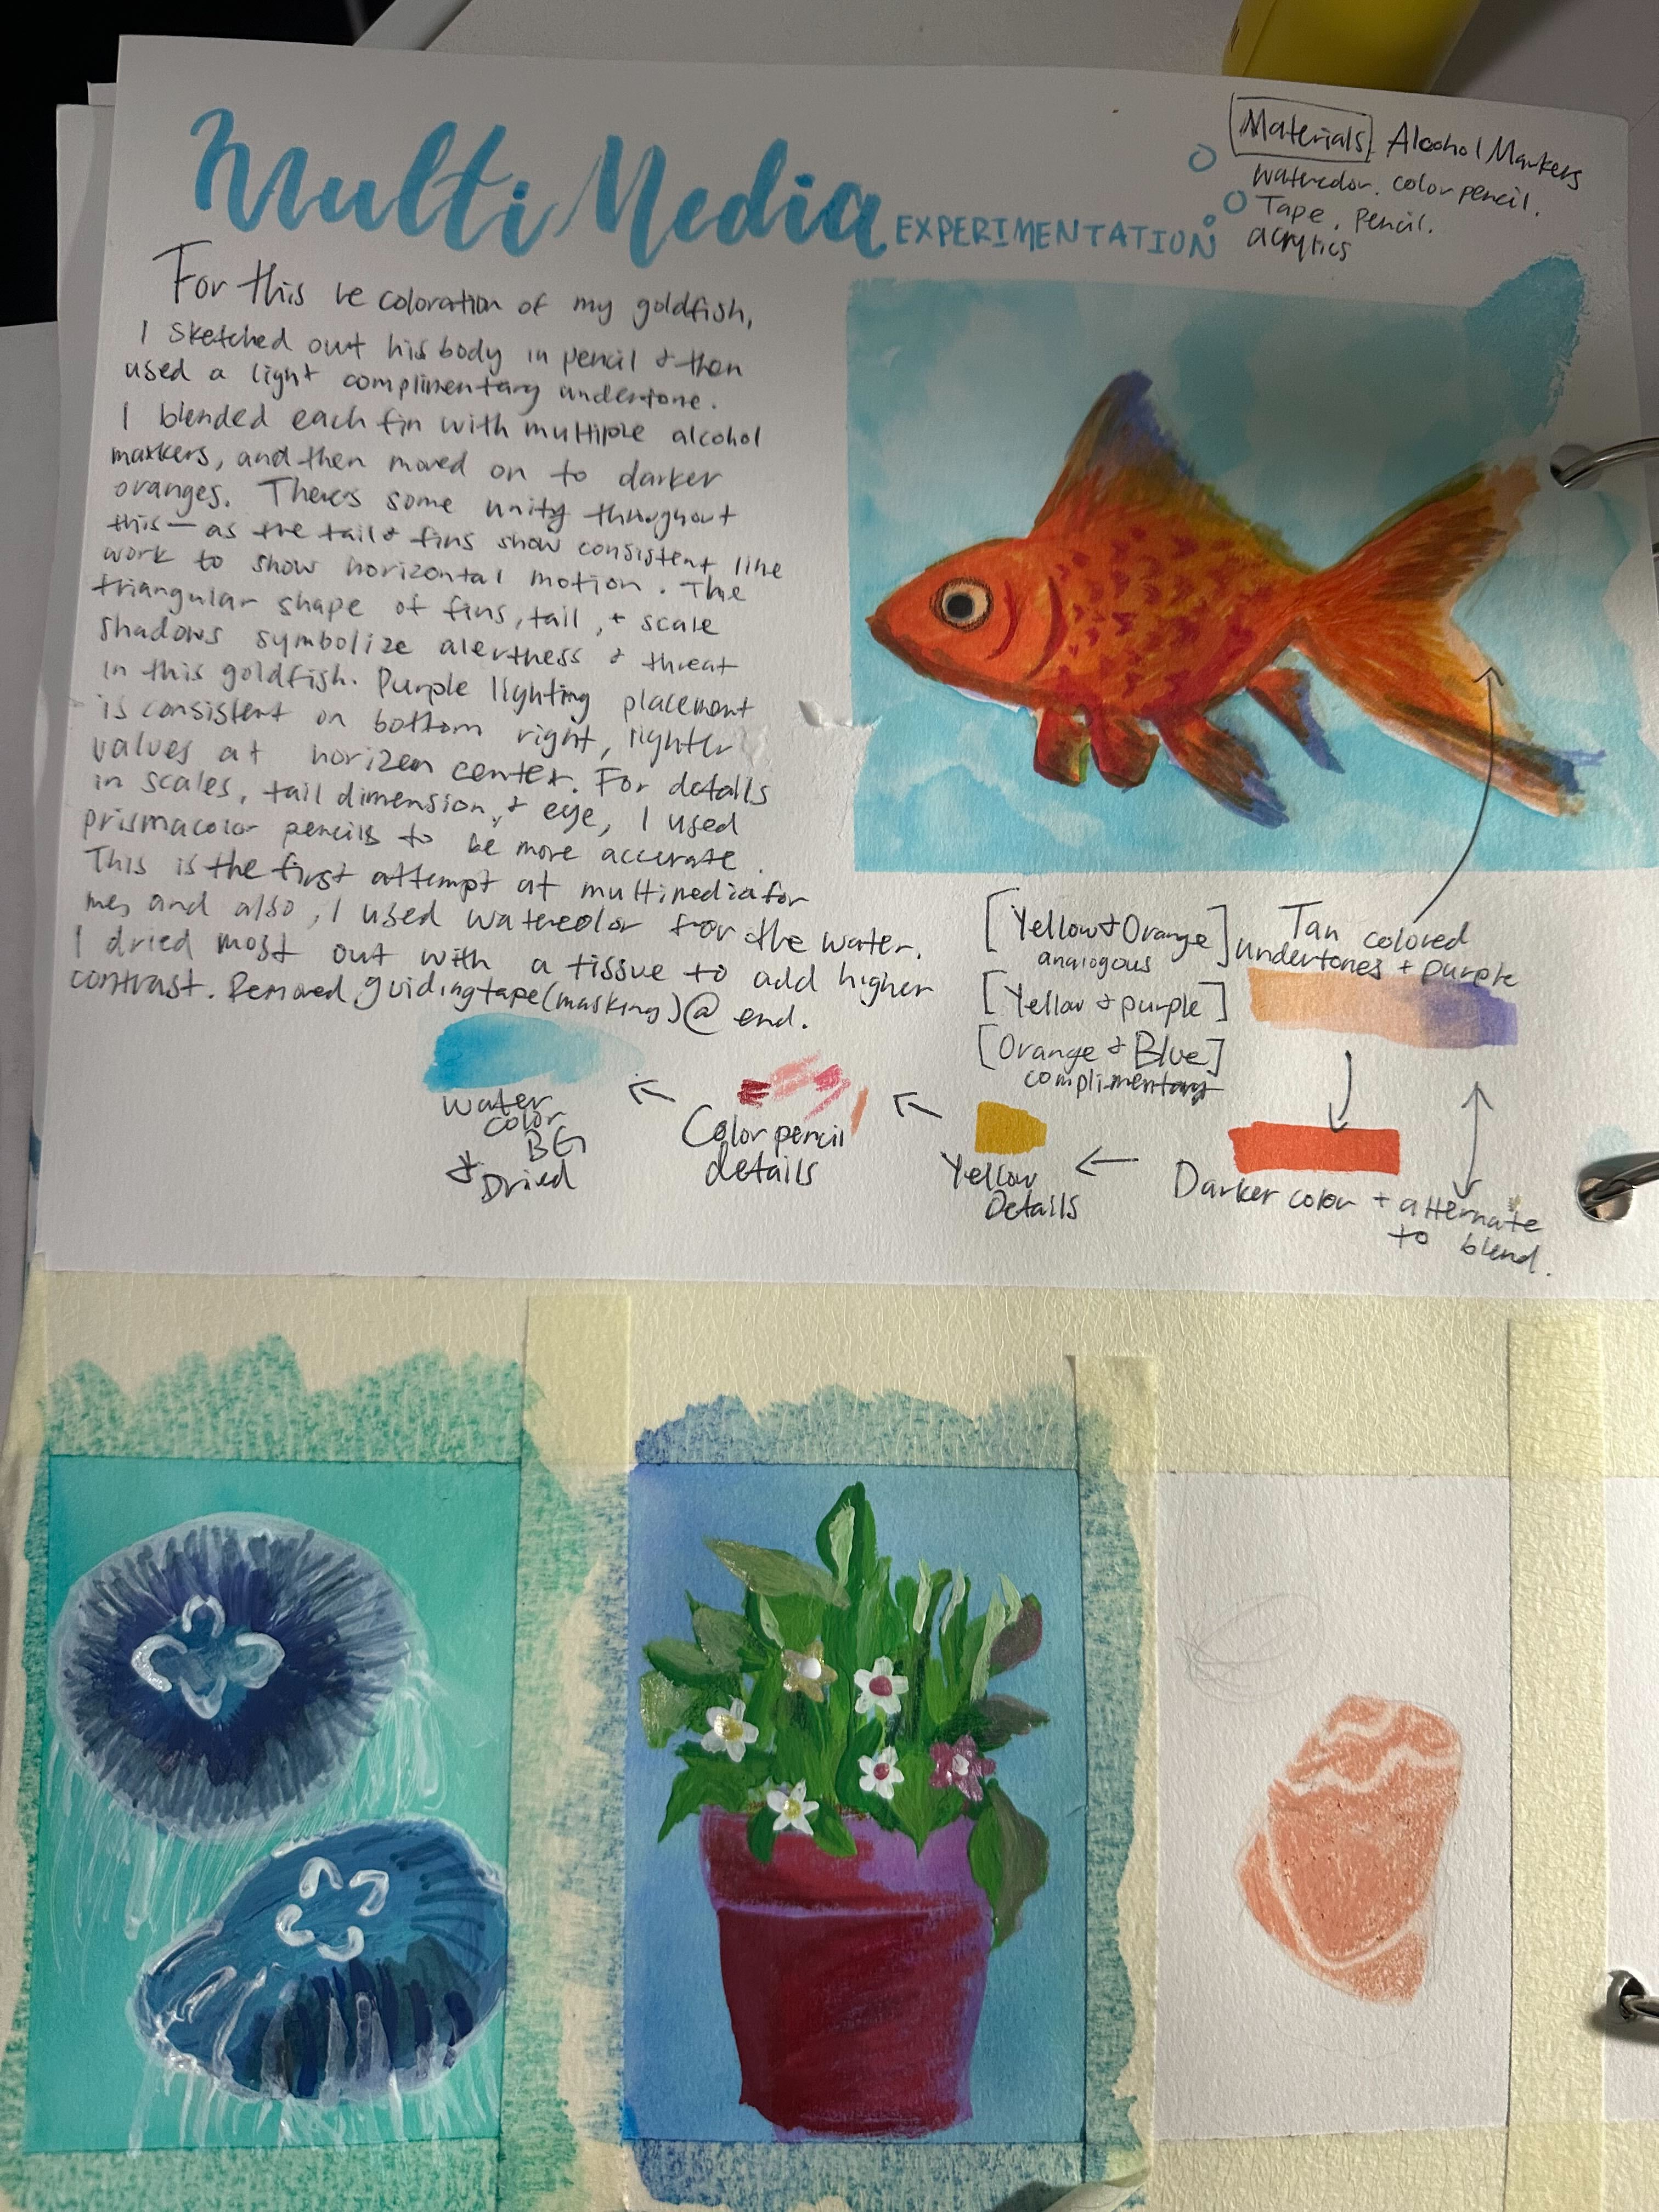 Multi Media EXPERIMENTATION
Materials Alcohol Markers
watercolor. color pencil.
Tape. Pencil.
acrylics
For this recoloration of my goldfish,
I sketched out his body in pencil & then
used a light complimentary undertone.
I blended each fin with multiple alcohol
markers, and then moved on to darker
oranges. Theres some unity throughout
this — as the tail & fins show consistent line
work to show horizontal motion. The
triangular shape of fins, tail, + scale
shadows symbolize alertness & threat
in this goldfish. Purple lighting placement
is consistent on bottom right, lighter
values at horizen center. For details
in scales, tail dimension, & eye, I used
prismacolor pencils to be more accurate.
This is the first attempt at multimedia for
me, and also, I used watercolor for the water.
I dried most out with a tissue to add higher
contrast. Removed guiding tape (masking) @ end.
[Yellow & Orange]
analogous
[Yellow & purple]
[Orange & Blue]
complimentary
Tan colored
undertones + purple
Darker color + alternate
to blend.
Yellow
Details
Color pencil
details
Water
color
BG
Dried